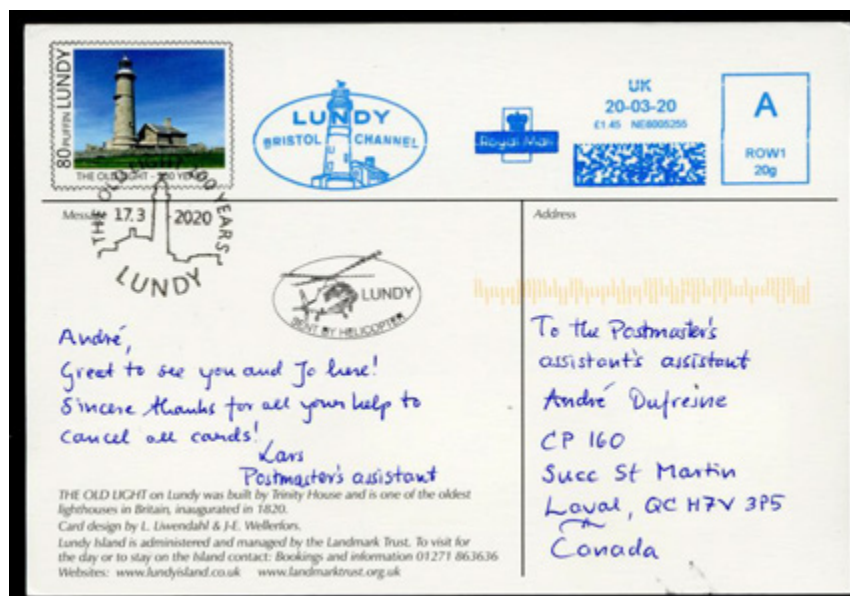 80 PUFFIN LUNDY
THE OLD LIGHT - 200 YEARS
LUNDY
BRISTOL CHANNEL
Royal Mail
UK
20-03-20
£1.45 NE6005255
A
ROW1
20g
Message
THE OLD LIGHT 200 YEARS
17.3 2020
LUNDY
LUNDY
SENT BY HELICOPTER
André,
Great to see you and Jo here!
Sincere thanks for all your help to
cancel all cards!
Lars
Postmaster's assistant
THE OLD LIGHT on Lundy was built by Trinity House and is one of the oldest
lighthouses in Britain, inaugurated in 1820.
Card design by L. Liwendahl & J-E. Wellerfors.
Lundy Island is administered and managed by the Landmark Trust. To visit for
the day or to stay on the Island contact: Bookings and information 01271 863636
Websites: www.lundyisland.co.uk www.landmarktrust.org.uk
Address
To the Postmaster's
assistant's assistant
André Dufresne
CP 160
Succ St Martin
Laval, QC H7V 3P5
Canada